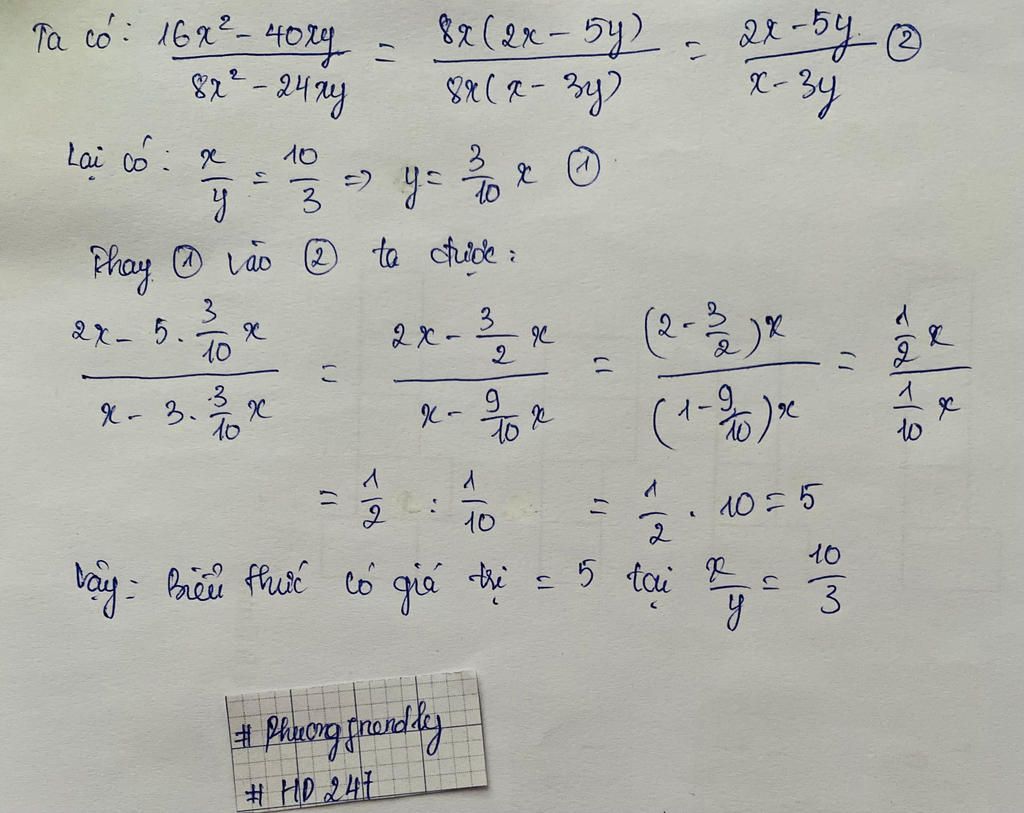 Ta có: 16x² - 40xy / 8x² - 24xy = 8x(2x - 5y) / 8x(x - 3y) = 2x - 5y / x - 3y ②
Lại có: x/y = 10/3 => y = 3/10 x ①
Thay ① vào ② ta được:
2x - 5 . 3/10 x / x - 3 . 3/10 x = 2x - 3/2 x / x - 9/10 x = (2 - 3/2)x / (1 - 9/10)x = 1/2 x / 1/10 x
= 1/2 : 1/10 = 1/2 . 10 = 5
Vậy: Biểu thức có giá trị = 5 tại x/y = 10/3
# Phuongfriendly
# HD 247